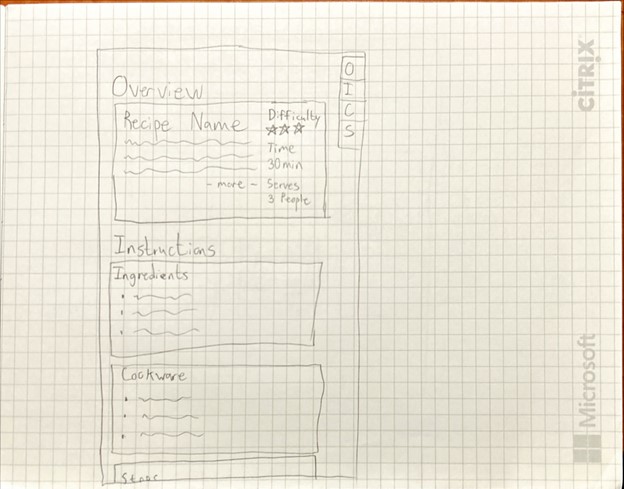 Overview
Recipe Name
- more -
Difficulty
☆☆☆
Time
30min
Serves
3 People
O
I
C
S
Instructions
Ingredients
Cookware
Steps
CITRIX
Microsoft